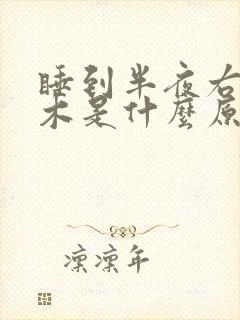 睡到半夜右
木是什麼原
凛凛年